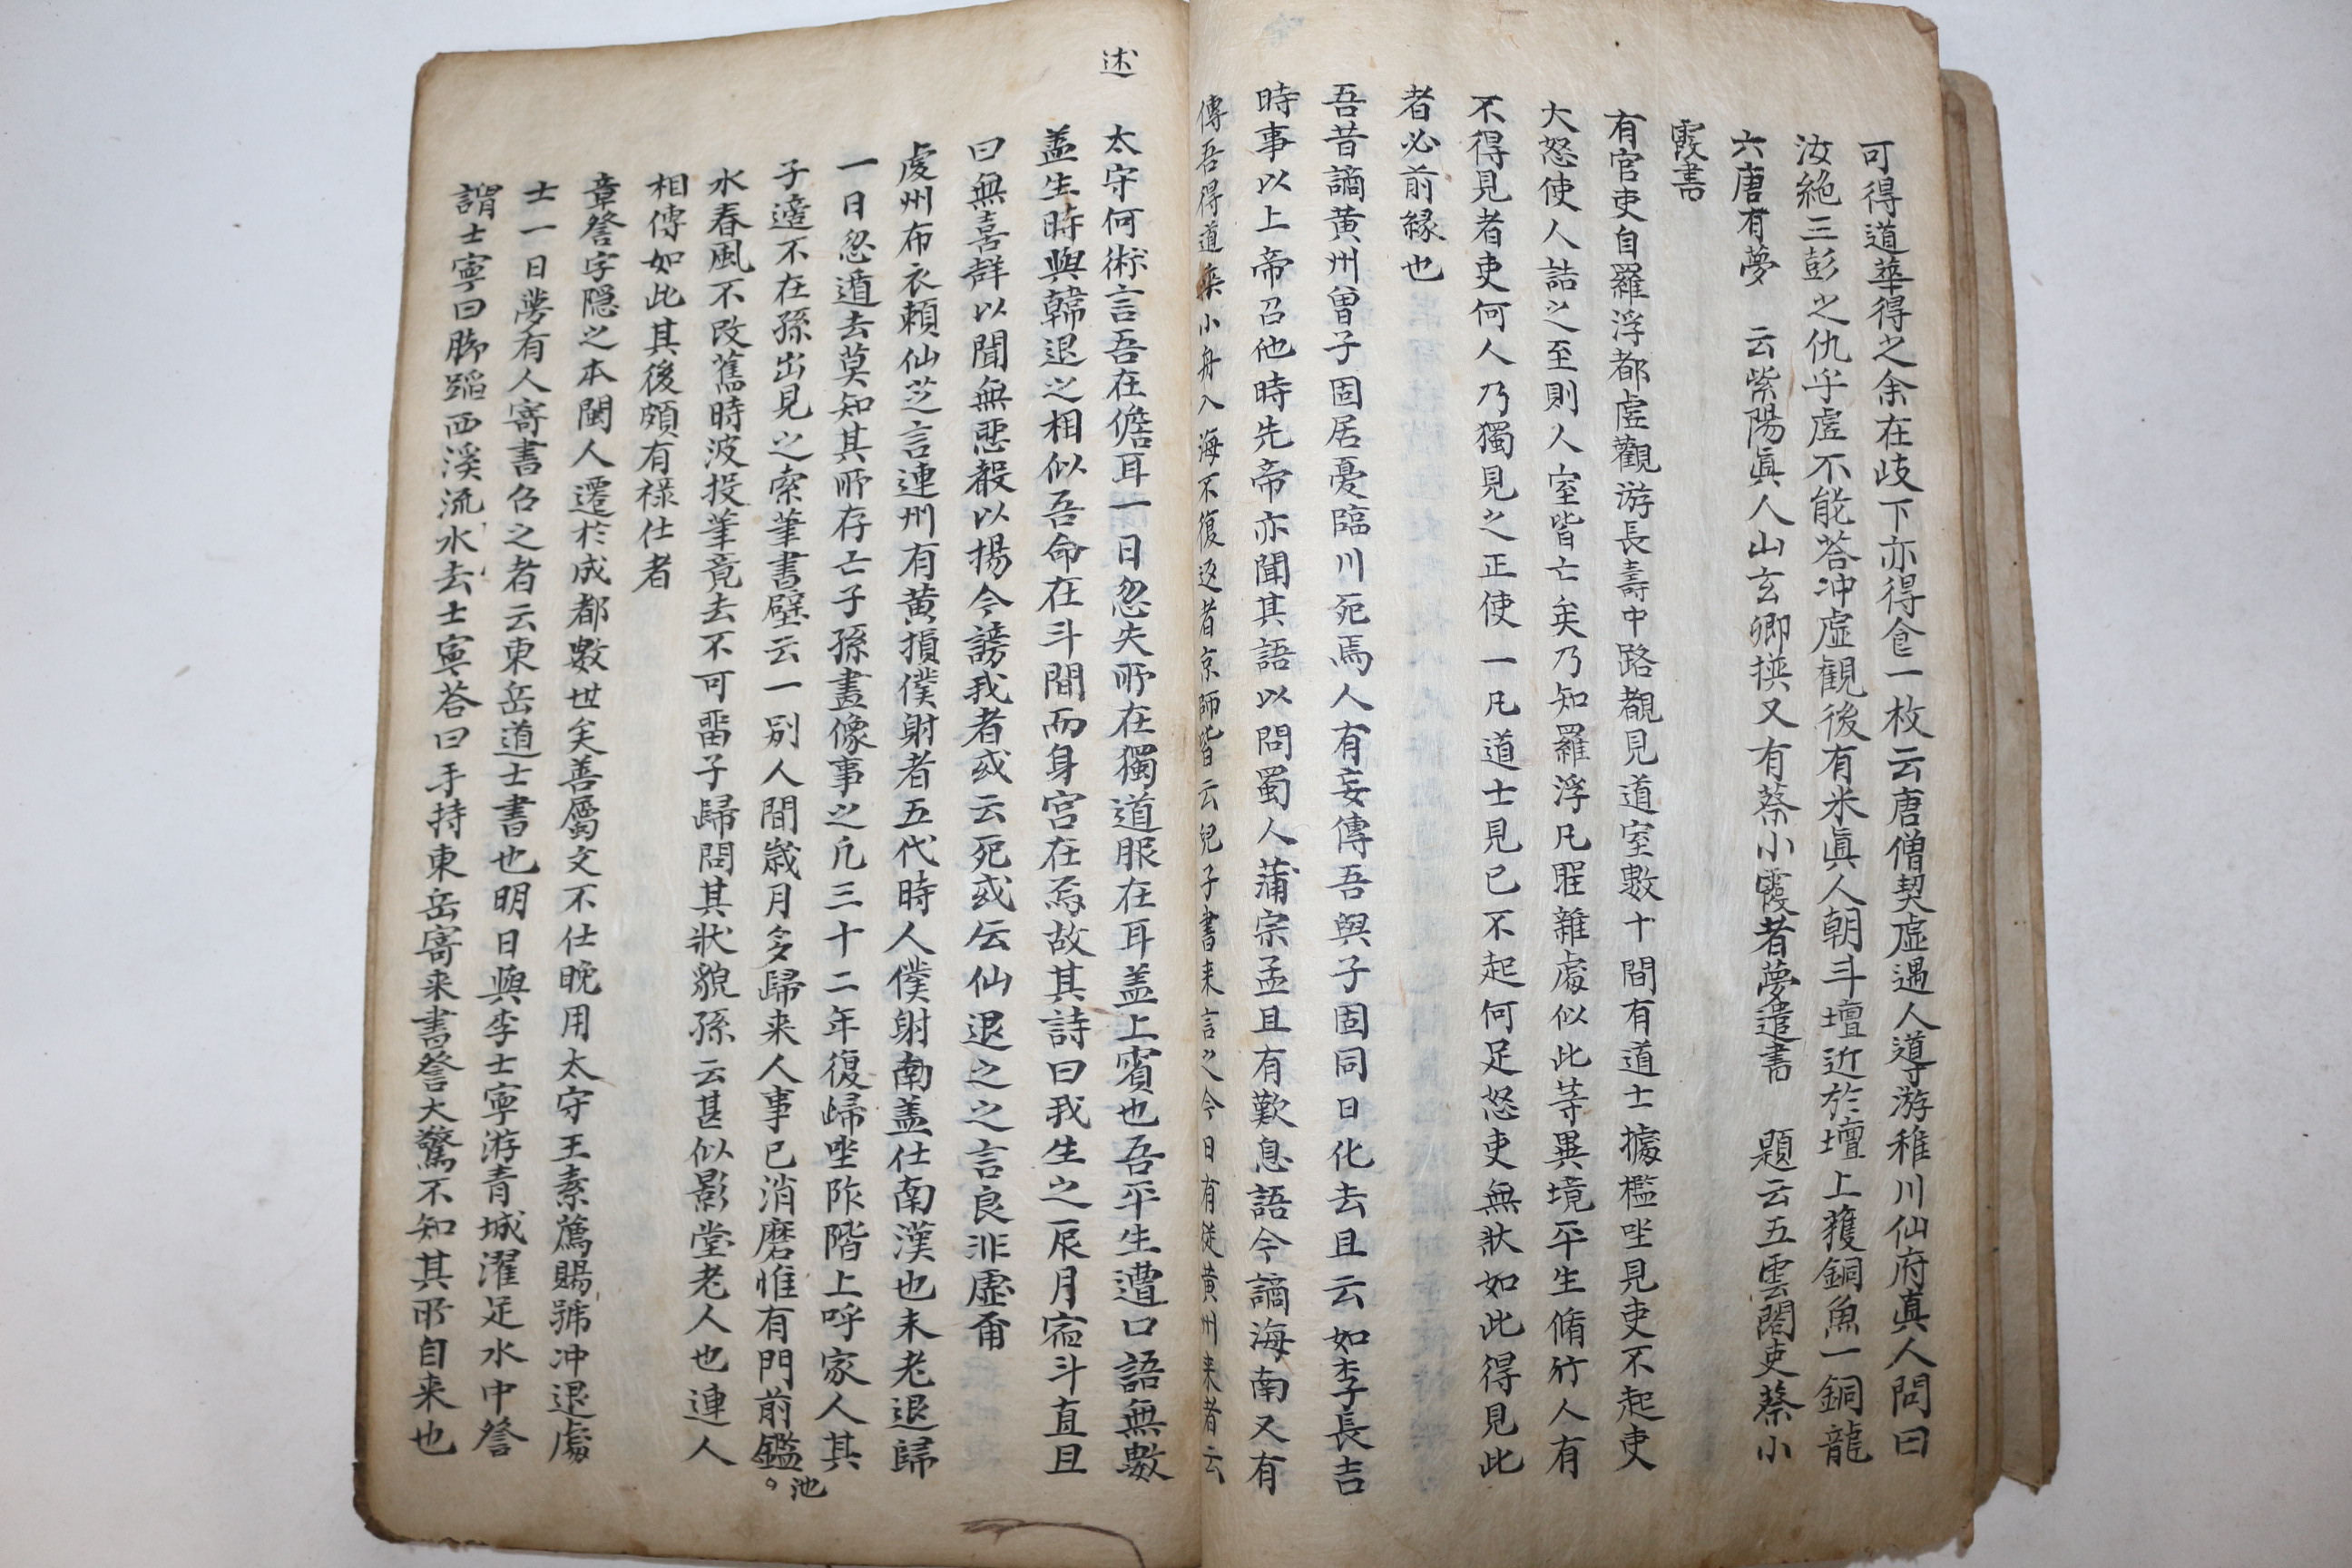 可得道華得之余在岐下亦得食一枚云唐僧契虛遇人導游稚川仙府真人問曰
汝絶三彭之仇乎虛不能荅冲虛観後有米真人朝斗壇近於壇上獲銅魚一銅龍
六唐有夢　云紫陽真人山玄卿撰又有蔡小霞者夢遣書　題云五雲閣吏蔡小
霞書
有官吏自羅浮都虛觀游長壽中路覩見道室數十間有道士據檻坐見吏不起吏
大怒使人詰之至則人室皆亡矣乃知羅浮凡聖雜處似此等異境平生脩行人有
不得見者吏何人乃獨見之正使一凡道士見已不起何足怒吏無狀如此得見此
者必前緣也
吾昔謫黄州曾子固居憂臨川死焉人有妄傳吾與子固同日化去且云如李長吉
時事以上帝召他時先帝亦聞其語以問蜀人蒲宗孟且有歎息語今謫海南又有
傳吾得道乘小舟入海不復返者京師皆云兒子書来言之今日有從黄州来者云
述
太守何術言吾在儋耳一日忽失所在獨道服在耳盖上賓也吾平生遭口語無數
盖生時與韓退之相似吾命在斗間而身宫在焉故其詩曰我生之辰月宿斗直且
曰無喜聲以聞無惡聲以揚今謗我者或云死或云仙退之之言良非虛甭
虔州布衣賴仙芝言連州有黄損僕射者五代時人僕射南盖仕南漢也末老退歸
一日忽遁去莫知其所存亡子孫畫像事之凡三十二年復歸坐阼階上呼家人其
子適不在孫出見之索筆書壁云一别人間歲月多歸来人事已消磨惟有門前鑑
池
水春風不改舊時波投筆竟去不可留子歸問其狀貌孫云甚似影堂老人也連人
相傳如此其後頗有禄仕者
章詧字隱之本閩人遷於成都數世矣善屬文不仕晚用太守王素薦賜號冲退處
士一日夢有人寄書召之者云東岳道士書也明日與李士寧游青城濯足水中詧
謂士寧曰脚蹈西溪流水去士寧荅曰手持東岳寄来書詧大驚不知其所自来也